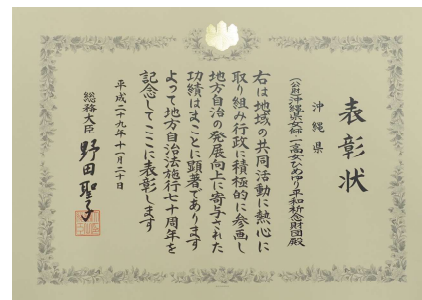 表彰状
沖縄県
(公財)沖縄県女師・一高女ひめゆり平和祈念財団殿
右は地域の共同活動に熱心に
取り組み行政に積極的に参画し
地方自治の発展向上に寄与された
功績はまことに顕著であります
よって地方自治法施行七十周年を
記念してここに表彰します
平成二十九年十一月二十日
総務大臣 野田聖子